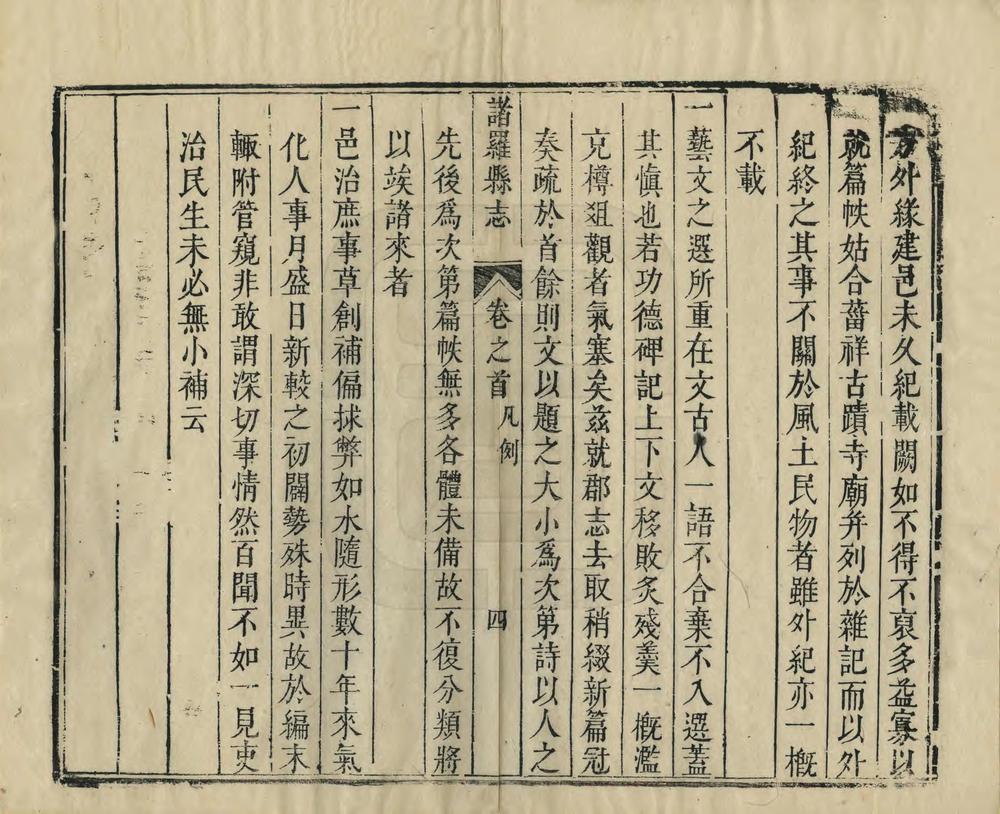 方外緣建邑未久紀載闕如不得不裒多益寡以
就篇帙姑合菑祥古蹟寺廟并列於雜記而以外
紀終之其事不關於風土民物者雖外紀亦一槪
不載
一藝文之選所重在文古人一語不合棄不入選蓋
其愼也若功德碑記上下文移敗炙殘羹一槪濫
充樽爼觀者氣塞矣茲就郡志去取稍綴新篇冠
奏疏於首餘則文以題之大小爲次第詩以人之
諸羅縣志 卷之首 凡例 四
先後爲次第篇帙無多各體未備故不復分類將
以竢諸來者
一邑治庶事草創補偏捄弊如水隨形數十年來氣
化人事月盛日新較之初闢勢殊時異故於編末
輙附管窺非敢謂深切事情然百聞不如一見吏
治民生未必無小補云